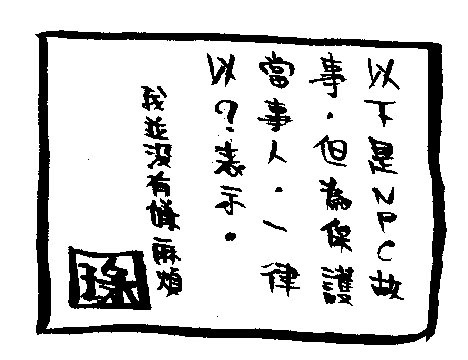 以下是NPC故
事．但為保護
當事人．一律
以？表示．
我並沒有嫌麻煩